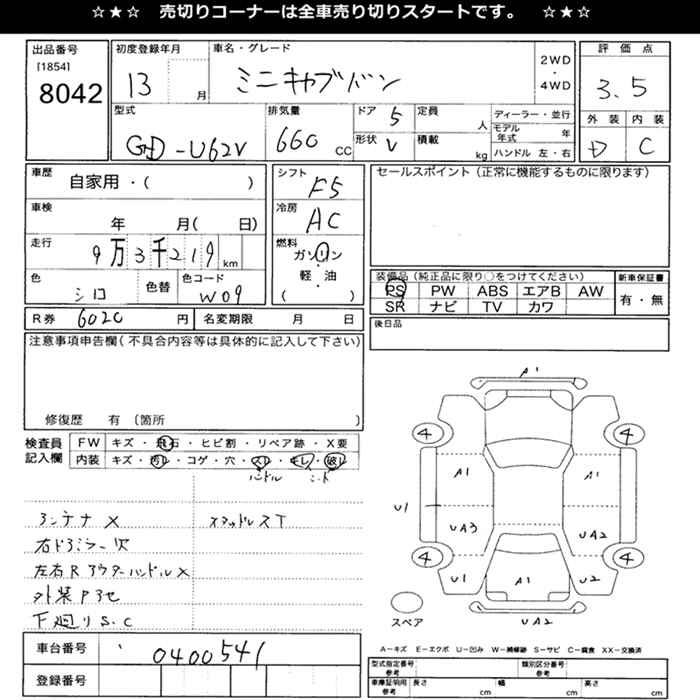 ☆★☆ 売切りコーナーは全車売り切りスタートです。 ☆★☆
出品番号
[1854]
8042
初度登録年月
13 月
車名・グレード
ミニキャブバン
2WD
・
4WD
評価点
3.5
外装 内装
D C
型式
GD-U62V
排気量
660 CC
ドア 5
形状 V
定員 人
積載 kg
ディーラー・並行
モデル年式 年
ハンドル 左・右
車歴
自家用・( )
車検
年 月( 日)
走行
9万3千219 km
色
シロ
色替
色コード
W09
シフト
F5
冷房
AC
燃料
ガソリン
・
軽・油
( )
セールスポイント(正常に機能するものに限ります)
装備品(純正品に限り○をつけてください)
PS PW ABS エアB AW
SR ナビ TV カワ
新車保証書
有・無
後日品
R券 6020 円 名変期限 月 日
注意事項申告欄(不具合内容等は具体的に記入して下さい)
修復歴 有 (箇所 )
検査員記入欄
FW キズ・飛石・ヒビ割・リペア跡・X要
内装 キズ・汚レ・コゲ・穴・スレ・キレ・破レ
ハンドル シート
アンテナ X
スタッドレスT
右ドアミラー欠
左右Rアウターハンドル X
外装P3セ
下廻りS.C
車台番号 0400541
登録番号
A1
4 4
A1 A1
U1
UA3 UA2
4 4
U1 A1 U2
UA2
スペア
A－キズ E－エクボ U－凹み W－補修跡 S－サビ C－腐食 XX－交換済
型式指定番号 参考 類別区分番号 参考
車庫証明用 参考 長さ cm 幅 cm 高さ cm